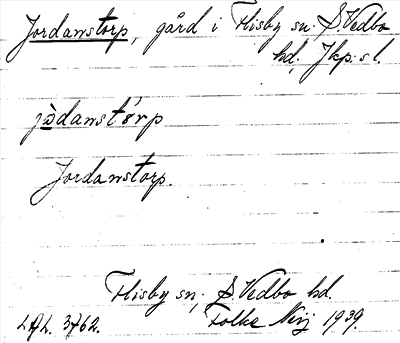 Jordanstorp, gård i Flisby sn. S. Vedbo
hd, Jkp:s l.
jòdanstørp
Jordanstorp.
Flisby sn, S. Vedbo hd.
LAL. 3762. Folke 1939.